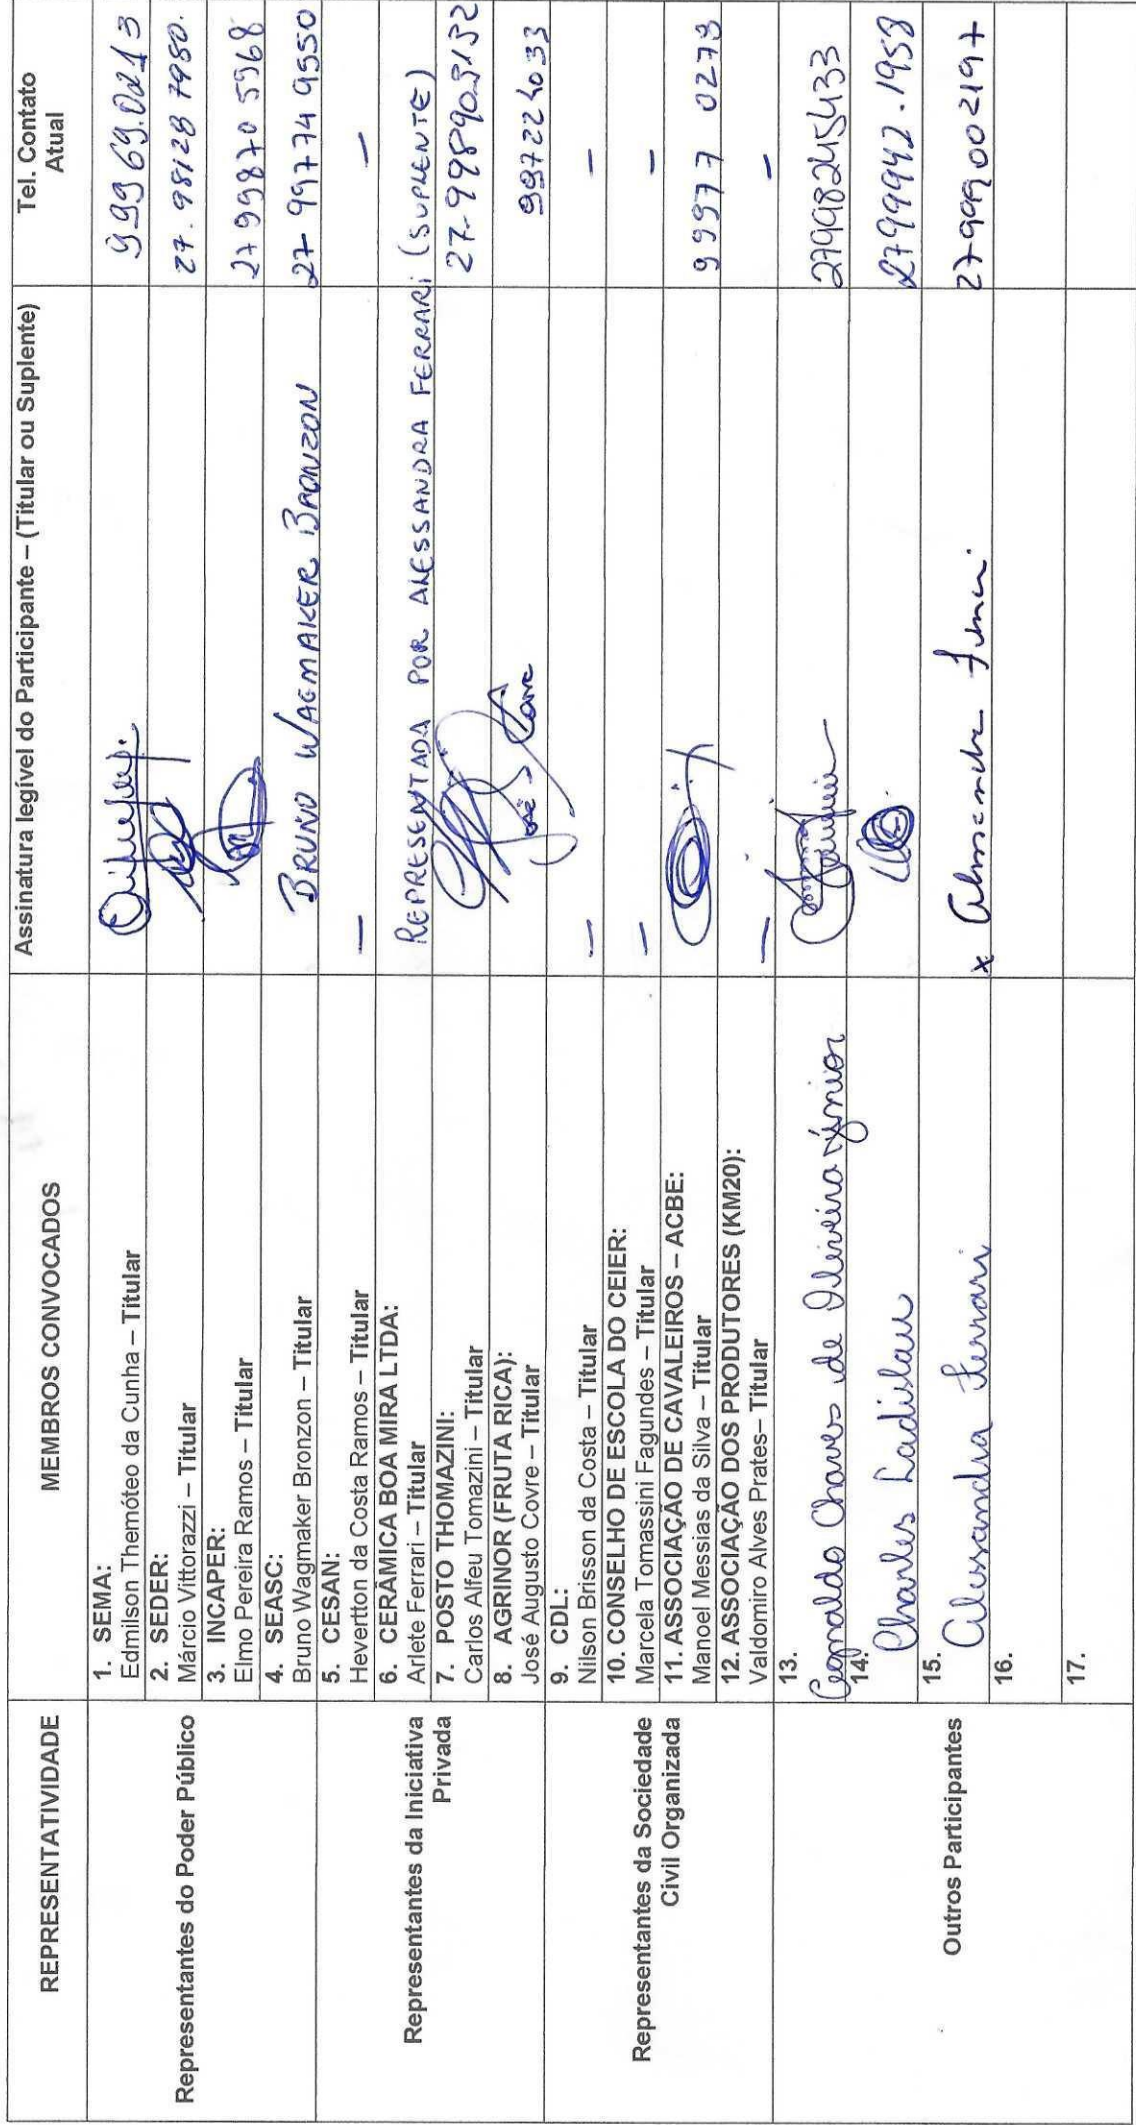 REPRESENTATIVIDADE
MEMBROS CONVOCADOS
Assinatura legível do Participante – (Titular ou Suplente)
Tel. Contato
Atual
Representantes do Poder Público
1. SEMA:
Edmilson Themóteo da Cunha – Titular
99969.0213
2. SEDER:
Márcio Vittorazzi – Titular
27. 98128 7980.
3. INCAPER:
Elmo Pereira Ramos – Titular
27 99870 5968
4. SEASC:
Bruno Wagmaker Bronzon – Titular
BRUNO WAGMAKER BRONZON
27-99774 9550
Representantes da Iniciativa
Privada
5. CESAN:
Hevertton da Costa Ramos – Titular
— —
6. CERÂMICA BOA MIRA LTDA:
Arlete Ferrari – Titular
REPRESENTADA POR ALESSANDRA FERRARI (SUPLENTE)
7. POSTO THOMAZINI:
Carlos Alfeu Tomazini – Titular
8. AGRINOR (FRUTA RICA):
José Augusto Covre – Titular
997224033
Representantes da Sociedade
Civil Organizada
9. CDL:
Nilson Brisson da Costa – Titular
— —
10. CONSELHO DE ESCOLA DO CEIER:
Marcela Tomassini Fagundes – Titular
— —
11. ASSOCIAÇÃO DE CAVALEIROS – ACBE:
Manoel Messias da Silva – Titular
99977 0279
12. ASSOCIAÇÃO DOS PRODUTORES (KM20):
Valdomiro Alves Prates– Titular
— —
Outros Participantes
13.
Chaves de Oliveira Júnior
27998245433
14.
Charles Ladislau
2799942.1958
15.
Alessandra Ferrari
x
27999002197
16.
17.